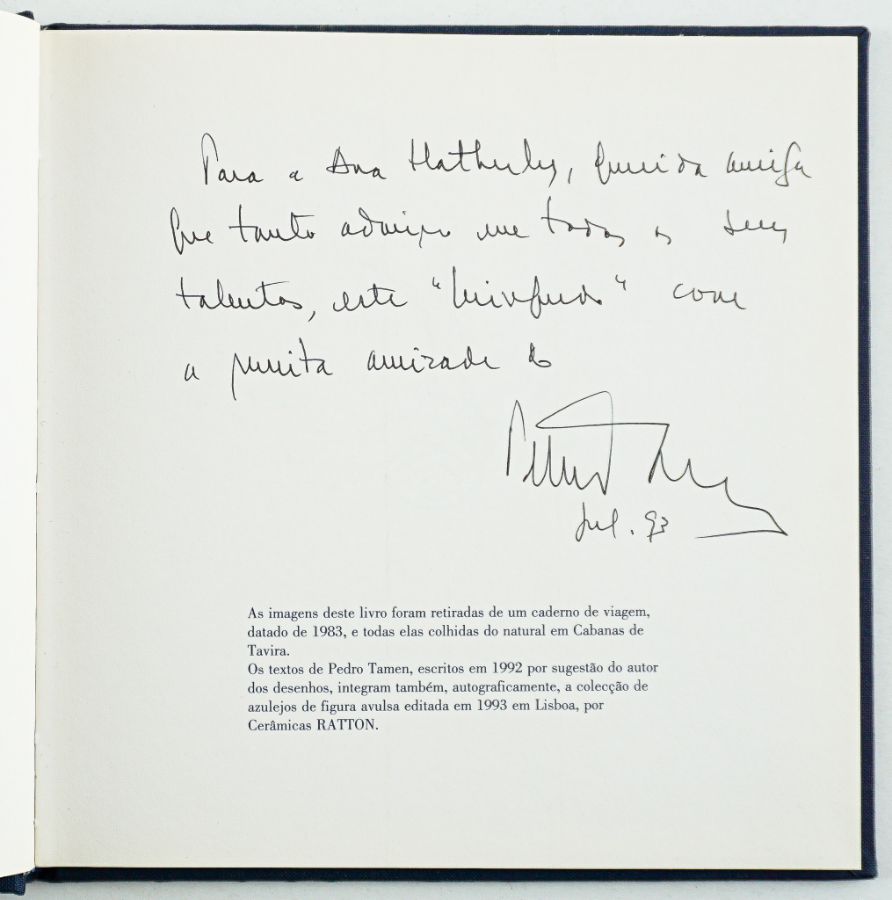 Para a Ana Hatherly, querida amiga
que tanto admiro em todos os seus
talentos, este "brinquedo" com
a muita amizade do
Pedro Tamen
Jul. 93
As imagens deste livro foram retiradas de um caderno de viagem,
datado de 1983, e todas elas colhidas do natural em Cabanas de
Tavira.
Os textos de Pedro Tamen, escritos em 1992 por sugestão do autor
dos desenhos, integram também, autograficamente, a colecção de
azulejos de figura avulsa editada em 1993 em Lisboa, por
Cerâmicas RATTON.